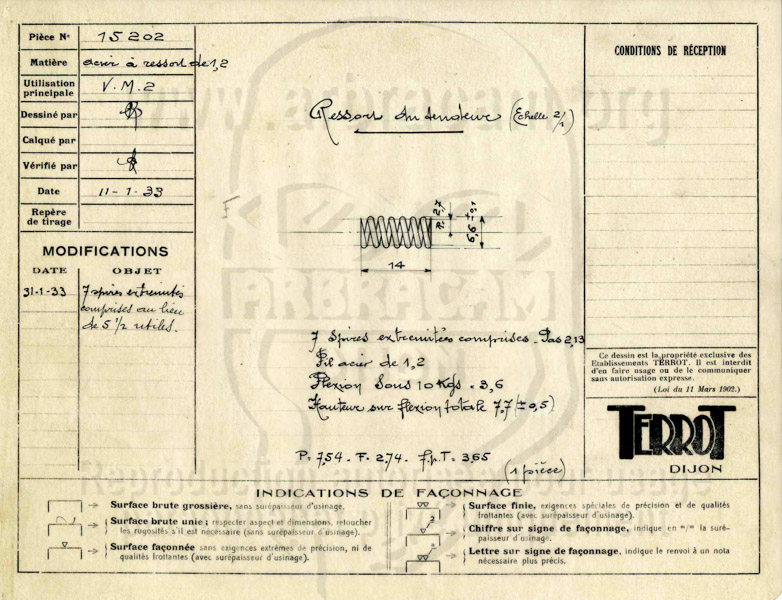 Pièce N° 15202
Matière acier à ressort de 1,2
Utilisation
principale V.M.2
Dessiné par
Calqué par
Vérifié par
Date 11-1-33
Repère
de tirage
MODIFICATIONS
DATE OBJET
31-1-33 7 spires extremités
comprises au lieu
de 5 1/2 utiles.
www.arbracam.org
Ressort du tendeur (Echelle 2/1)
R. 2,7
6,6 ± 0,1
14
ARBRACAM
7 spires extremitées comprises - Pas 2,13
Fil acier de 1,2
Flexion sous 10 Kgs = 3,6
Hauteur sur flexion totale 7,7 (± 0,5)
P = 7,54 - F. 2,74. f.p.T = 365
(1 pièce)
CONDITIONS DE RÉCEPTION
Ce dessin est la propriété exclusive des
Etablissements TERROT. Il est interdit
d'en faire usage ou de le communiquer
sans autorisation expresse.
(Loi du 11 Mars 1902.)
TERROT
DIJON
INDICATIONS DE FAÇONNAGE
Surface brute grossière, sans surépaisseur d'usinage.
Surface brute unie ; respecter aspect et dimensions, retoucher
les rugosités s'il est nécessaire (sans surépaisseur d'usinage).
Surface façonnée sans exigences extrêmes de précision, ni de
qualités frottantes (avec surépaisseur d'usinage).
Surface finie, exigences spéciales de précision et de qualités
frottantes (avec surépaisseur d'usinage).
Chiffre sur signe de façonnage, indique en "/" la suré-
paisseur d'usinage.
Lettre sur signe de façonnage, indique le renvoi à un nota
nécessaire plus précis.